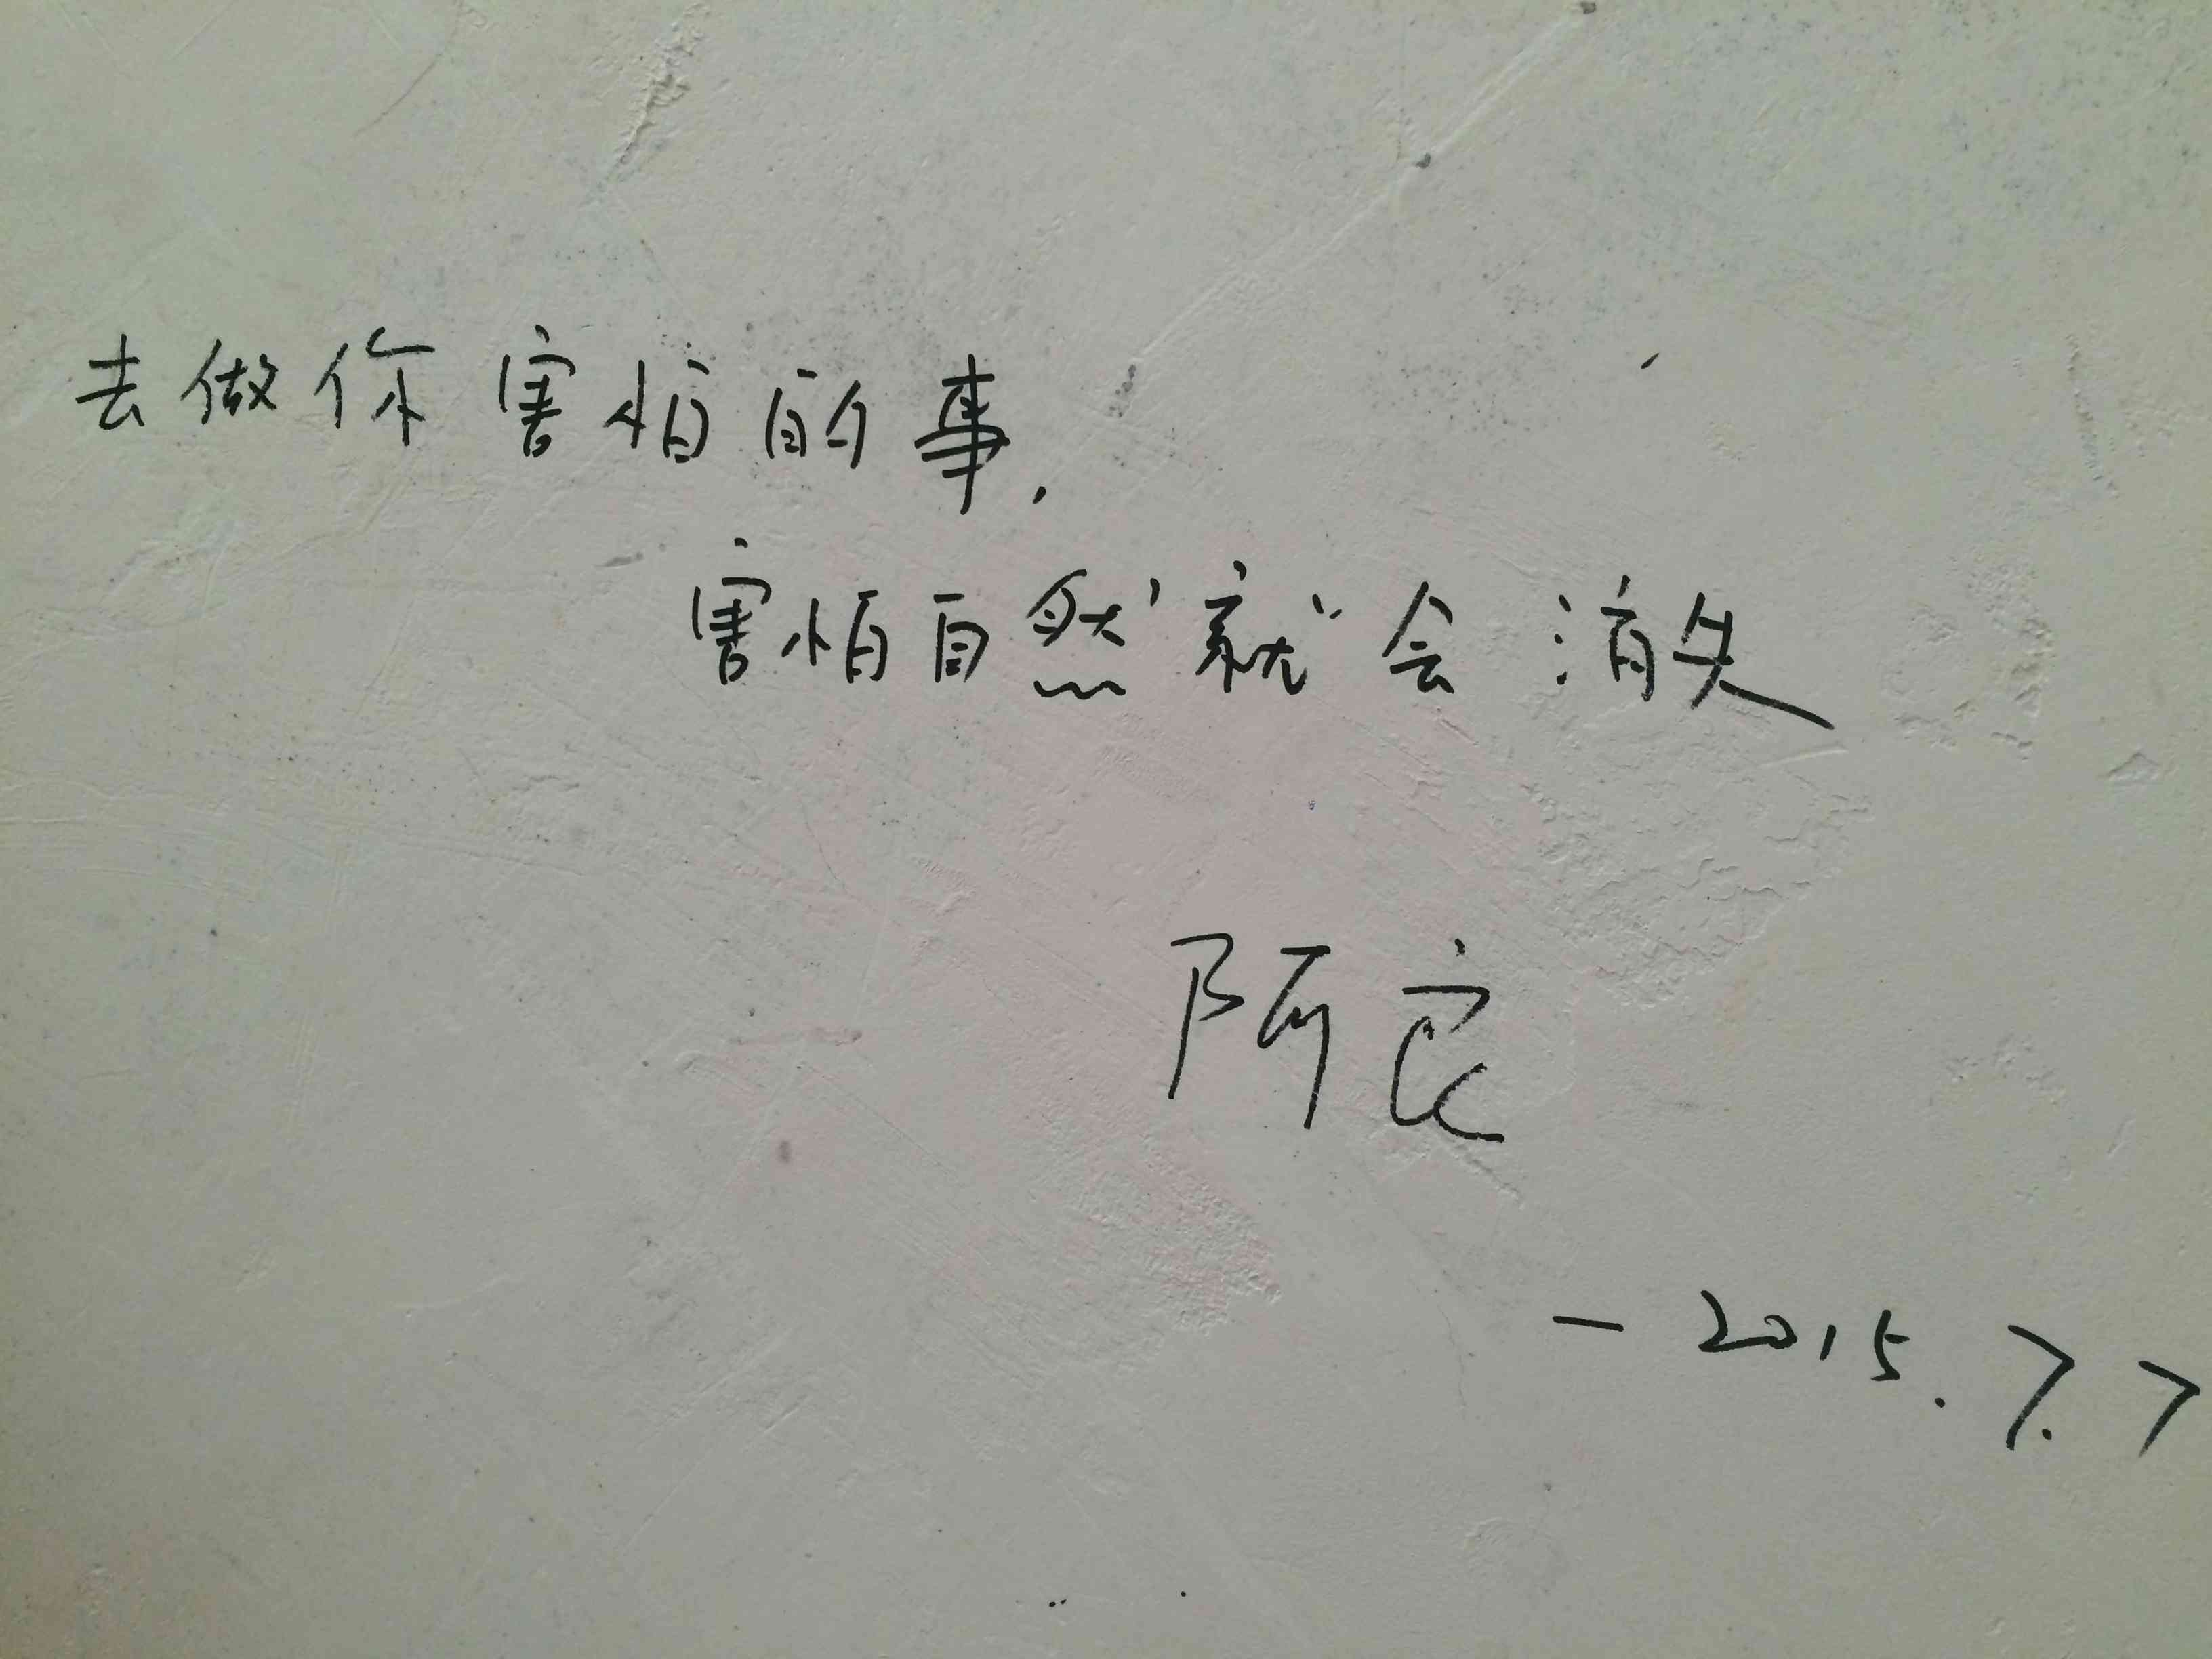 去做你害怕的事，
害怕自然就会消失
阿良
— 2015.7.7